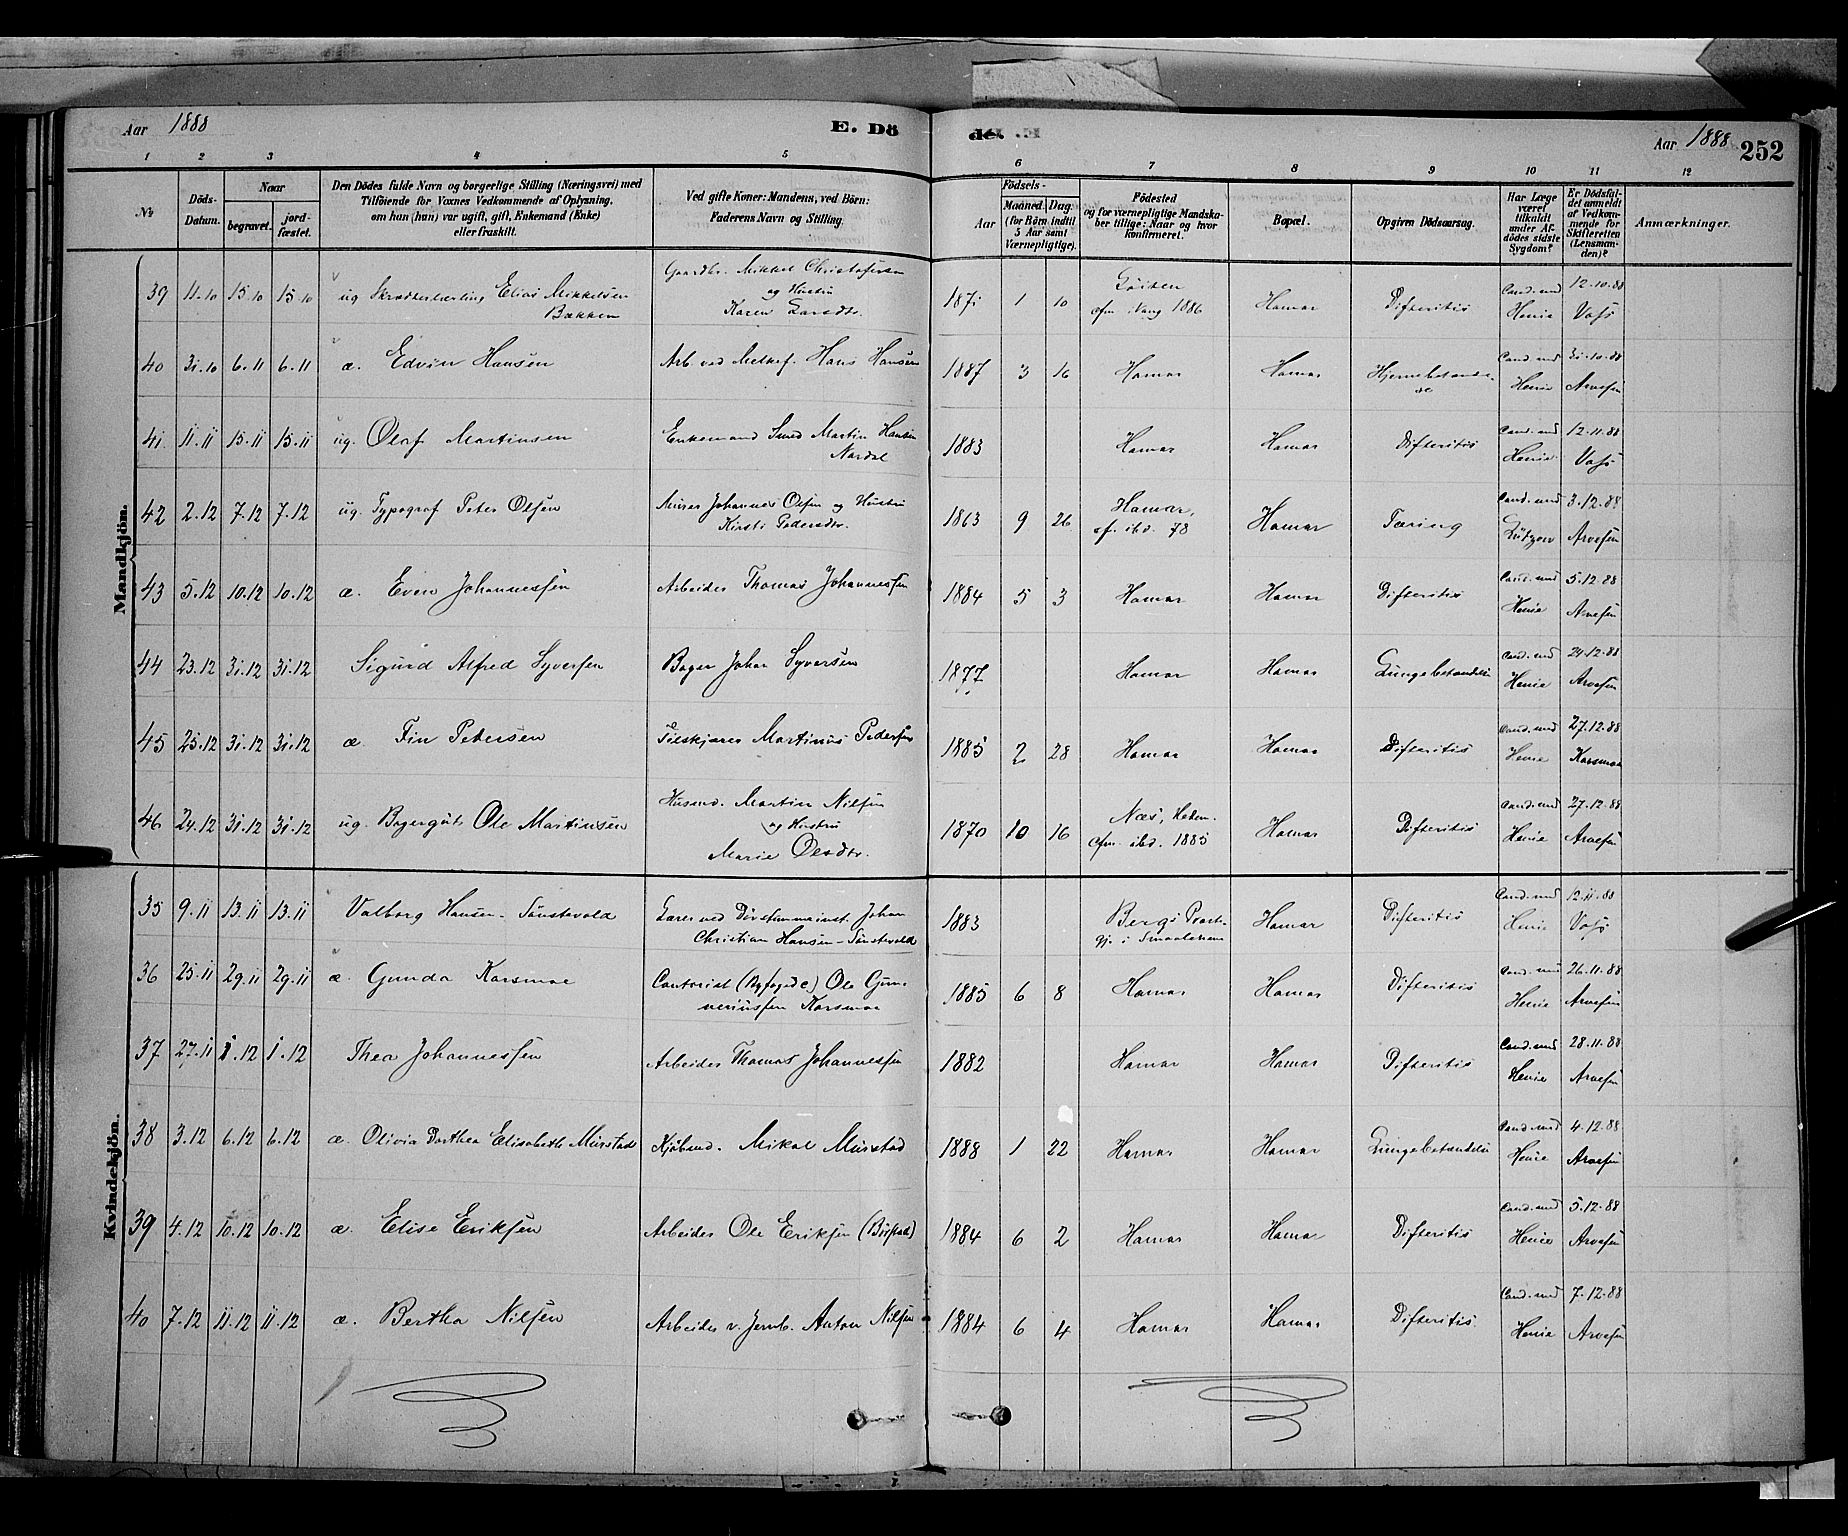 Aar 1888 E. Dö
de. Aar 1888 252
1 2 3 4 5 6 7 8 9 10 11 12
№
Döds-
Datum.
Naar
begravet.
jord-
fæstet.
Den Dödes fulde Navn og borgerlige Stilling (Næringsvei) med
Tilföiende for Voxnes Vedkommende af Oplysning,
om han (hun) var ugift, gift, Enkemand (Enke)
eller fraskilt.
Ved gifte Koner: Mandens, ved Börn:
Faderens Navn og Stilling.
Födsels-
Aar
Maaned. Dag.
(for Börn indtil
5 Aar samt
Værnepligtige).
Födested
og for værnepligtige Mandska-
ber tillige: Naar og hvor
konfirmeret.
Bopæl.
Opgiven Dödsaarsag.
Har Læge
været
tilkaldt
under Af-
dödes sidste
Sygdom?
Er Dödsfal-
det anmeldt
af Vedkom-
mende for
Skifteretten
(Lensman-
den)?
Anmærkninger.
Mandkjön.
39 11.10 15.10 15.10 ug Skrædderlærling Elias Mikkelsen
Bækken
Gaardbr. Mikkel Christofersen
og Hustru
Karen Larsdtr.
1871 1 10
cfm. Vang 1886
Hamar Difteritis
Cand. med
Henie
12.10.88
Vofs
40 31.10 6.11 6.11 æ. Edvin Hansen
Arb. ved Melkef. Hans Hansen
1887 3 16 Hamar Hamar Hjernebetændel-
se
Cand. med
Henie
31.10.88
Arvesen
41. 11.11 15.11 15.11 ug. Olaf Martinsen
Enkemand Smed Martin Hansen
Nordal
1883 Hamar Hamar Difteritis
Cand. med
Henie
12.11.88
Vofs
42 2.12 7.12 7.12 ug. Typograf Peter Olsen
Murer Johannes Olsen og Hustru
Kirsti Pedersdtr.
1863 9 26 Hamar,
cf. ibd. 78
Hamar Tæring
Cand. med
Lützow
3.12.88
Arvesen
43 5.12 10.12 10.12 æ. Even Johannessen
Arbeider Thomas Johannessen
1884 5 3 Hamar Hamar Difteritis
Cand. med
Henie
5.12.88
Arvesen
44 23.12 31.12 31.12 Sigurd Alfred Syversen
Bager Johan Syversen
1877 Hamar Hamar Lungebetændelse
Cand. med
Henie
24.12.88
Arvesen
45 25.12 31.12 31.12 æ. Fin Petersen
Filskjærer Martinus Pedersen
1885 2 28 Hamar Hamar Difteritis
Cand. med
Henie
27.12.88
Karsmoe
46 24.12 31.12 31.12 ug. Bagergut Ole Martinsen
Husmd. Martin Nilsen
og Hustru
Marie Olsdtr.
1870 10 16 Næs, Hedm.
cfm. ibd. 1885
Hamar Difteritis
Cand. med
Henie
27.12.88
Arvesen
Kvindekjön.
35 9.11 13.11 13.11 Valborg Hansen-Tønstevold
Lærer ved Døvstummeinst. Johan
Christian Hansen-Tønstevold
1883 Bergs Præste-
gj. i Smaalenene
Hamar Difteritis
Cand. med
Henie
12.11.88
Vofs
36 25.11 29.11 29.11 æ. Gunda Karsmoe
Contorist (Byfoged e) Ole Gun-
neriussen Karsmoe
1885 6 8 Hamar Hamar Difteritis
Cand. med
Henie
26.11.88
Arvesen
37 27.11 1.12 1.12 Thea Johannessen
Arbeider Thomas Johannessen
1882 Hamar Hamar Difteritis
Cand. med
Henie
28.11.88
Arvesen
38 3.12 6.12 6.12 æ. Olivia Dorthea Elisabeth Murstad
Kjøbmd. Mikal Murstad
1888 1 22 Hamar Hamar Lungebetændelse
Cand. med
Henie
4.12.88
Arvesen
39 4.12 10.12 10.12 æ. Elise Eriksen
Arbeider Ole Eriksen
1884 6 2 Hamar Hamar Difteritis
Cand. med
Henie
5.12.88
Arvesen
40 7.12 11.12 11.12 æ. Bertha Nilsen
Arbeider v. Jernb. Anton Nilsen
1884 6 4 Hamar Hamar Difteritis.
Cand. med
Henie
7.12.88
Arvesen